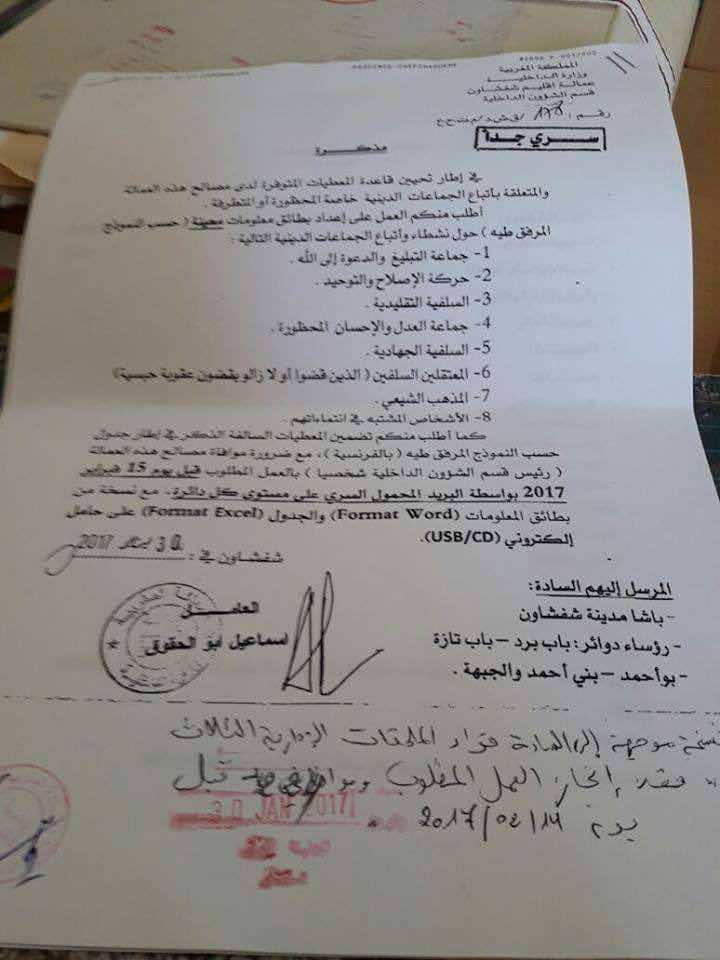 المملكة المغربية
وزارة الداخلية
عمالة اقليم شفشاون
قسم الشؤون الداخلية
رقم :
سري جدا
مذكرة
في إطار تحيين قاعدة المعطيات المتوفرة لدى مصالح هذه العمالة
والمتعلقة بأتباع الجماعات الدينية خاصة المحظورة أو المتطرفة .
أطلب منكم العمل على إعداد بطائق معلومات محينة ( حسب النموذج
المرفق طيه ) حول نشطاء وأتباع الجماعات الدينية التالية :
1- جماعة التبليغ والدعوة إلى الله .
2- حركة الإصلاح والتوحيد .
3- السلفية التقليدية .
4- جماعة العدل والإحسان المحظورة .
5- السلفية الجهادية .
6- المعتقلين السلفين ( الذين قضوا أو لا زالو يقضون عقوبة حبسية)
7- المذهب الشيعي .
8- الأشخاص المشتبه في انتماءاتهم .
كما أطلب منكم تضمين المعطيات السالفة الذكر في إطار جدول
حسب النموذج المرفق طيه ( بالفرنسية ) ، مع ضرورة موافاة مصالح هذه العمالة
( رئيس قسم الشؤون الداخلية شخصيا ) بالعمل المطلوب قبل يوم 15 فبراير
2017 بواسطة البريد المحمول السري على مستوى كل دائرة. مع نسخة من
بطائق المعلومات (Format Word) والجدول (Format Excel) على حامل
إلكتروني (USB/CD).
شفشاون في : 30 يناير 2017
العامل
اسماعيل ابو الحقوق
المرسل إليهم السادة :
- باشا مدينة شفشاون
- رؤساء دوائر : باب برد – باب تازة
- بوأحمد – بني أحمد والجبهة .
نسخة موجهة إلى السادة قواد الملحقات الإدارية الثلاث
قصد إنجاز العمل المطلوب قبل
يوم 14/02/2017
30 JAN 2017